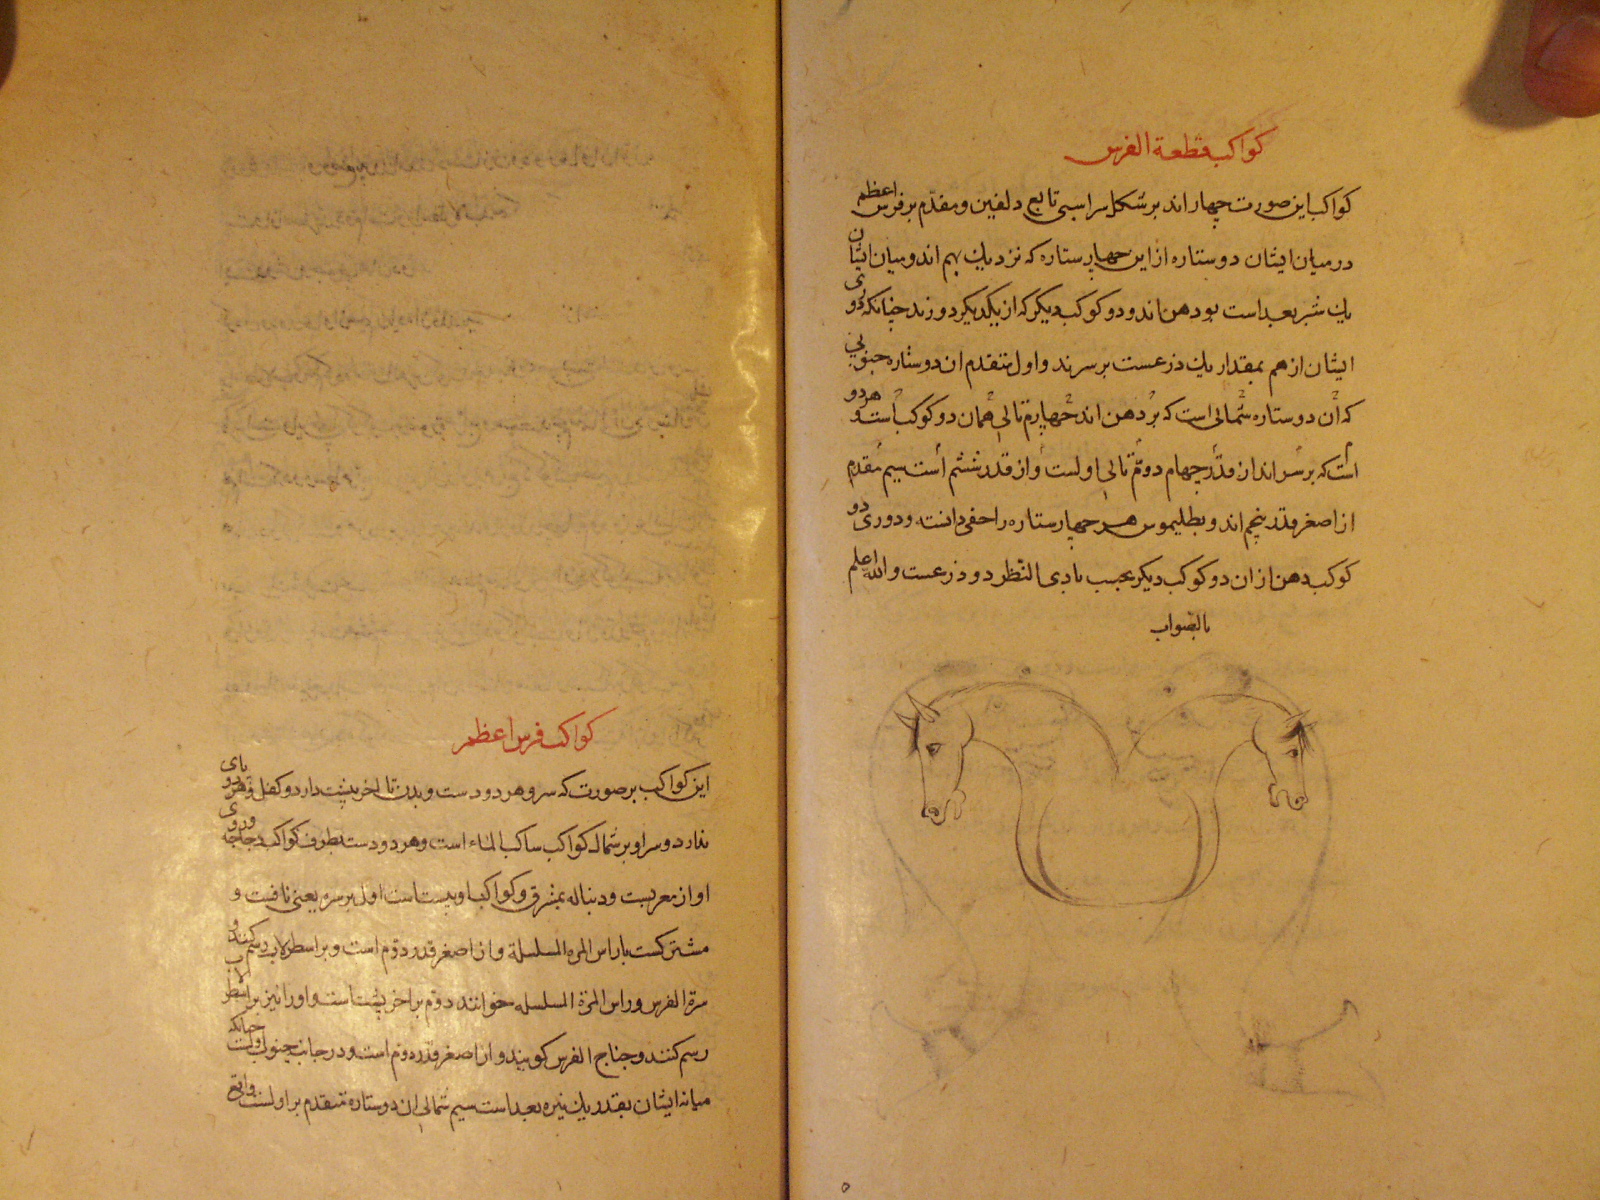 کواکب قطعة الفرس
کواکب این صورت چهار اند بر شکل سر اسبی تابع دلفین و مقدم بر فرس اعظم
در میان ایشان دو ستاره از این چهار ستاره که نزدیك بهم اند و میان ایشان
یك شبر بعد است بر دهن اند و دو کوکب دیکر که از یکدیکر دورند چنانکه دوری
ایشان از هم بمقدار یك ذرعست بر سرند و اول متقدم ان دو ستاره جنوبی
که آن دو ستاره شمالی است که بر دهن اند چهارم تالی همان دو کوکب است و هر دو
است که بر سر اند از قدر چهام دوم تالی اولست و از قدر ششم است سیم مقدم
از اصغر قدر پنجم اند و بطلیموس هر چهار ستاره را خفی دانسته و دوری دو
کوکب دهن از ان دو کوکب دیکر بحسب بادی النظر دو ذرعست و الله اعلم
بالصواب
کواکب فرس اعظم
این کواکب بر صورت که سر و هر دو دست و بدن تا اخر پشت دارد و کفل و هر دو پای
ندارد و سر او بر شمال کواکب ساکب الماء است و هر دو دست بطرف کواکب دجاجه و روی
او از مغربست و دنباله بمشرق و کواکب او بیست است اول بر سره یعنی نافست و
مشترکست با راس المره المسلسلة و از اصغر قدر دوم است و بر اسطرلاب رسم کنند و
سرة الفرس و راس المرة المسلسله خوانند دوم بر اخر پشت است و او را نیز بر اسطرلاب
رسم کنند و جناح الفرس کویند و از اصغر قدر دوم است و در جانب جنوب اولست چنانکه
میانه ایشان بقدر یك نیزه بعد است سیم شمالی ان دو ستاره متقدم بر اولست واقع